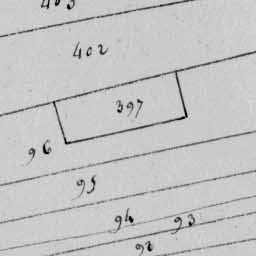 403
402
397
96
95
94 93
92